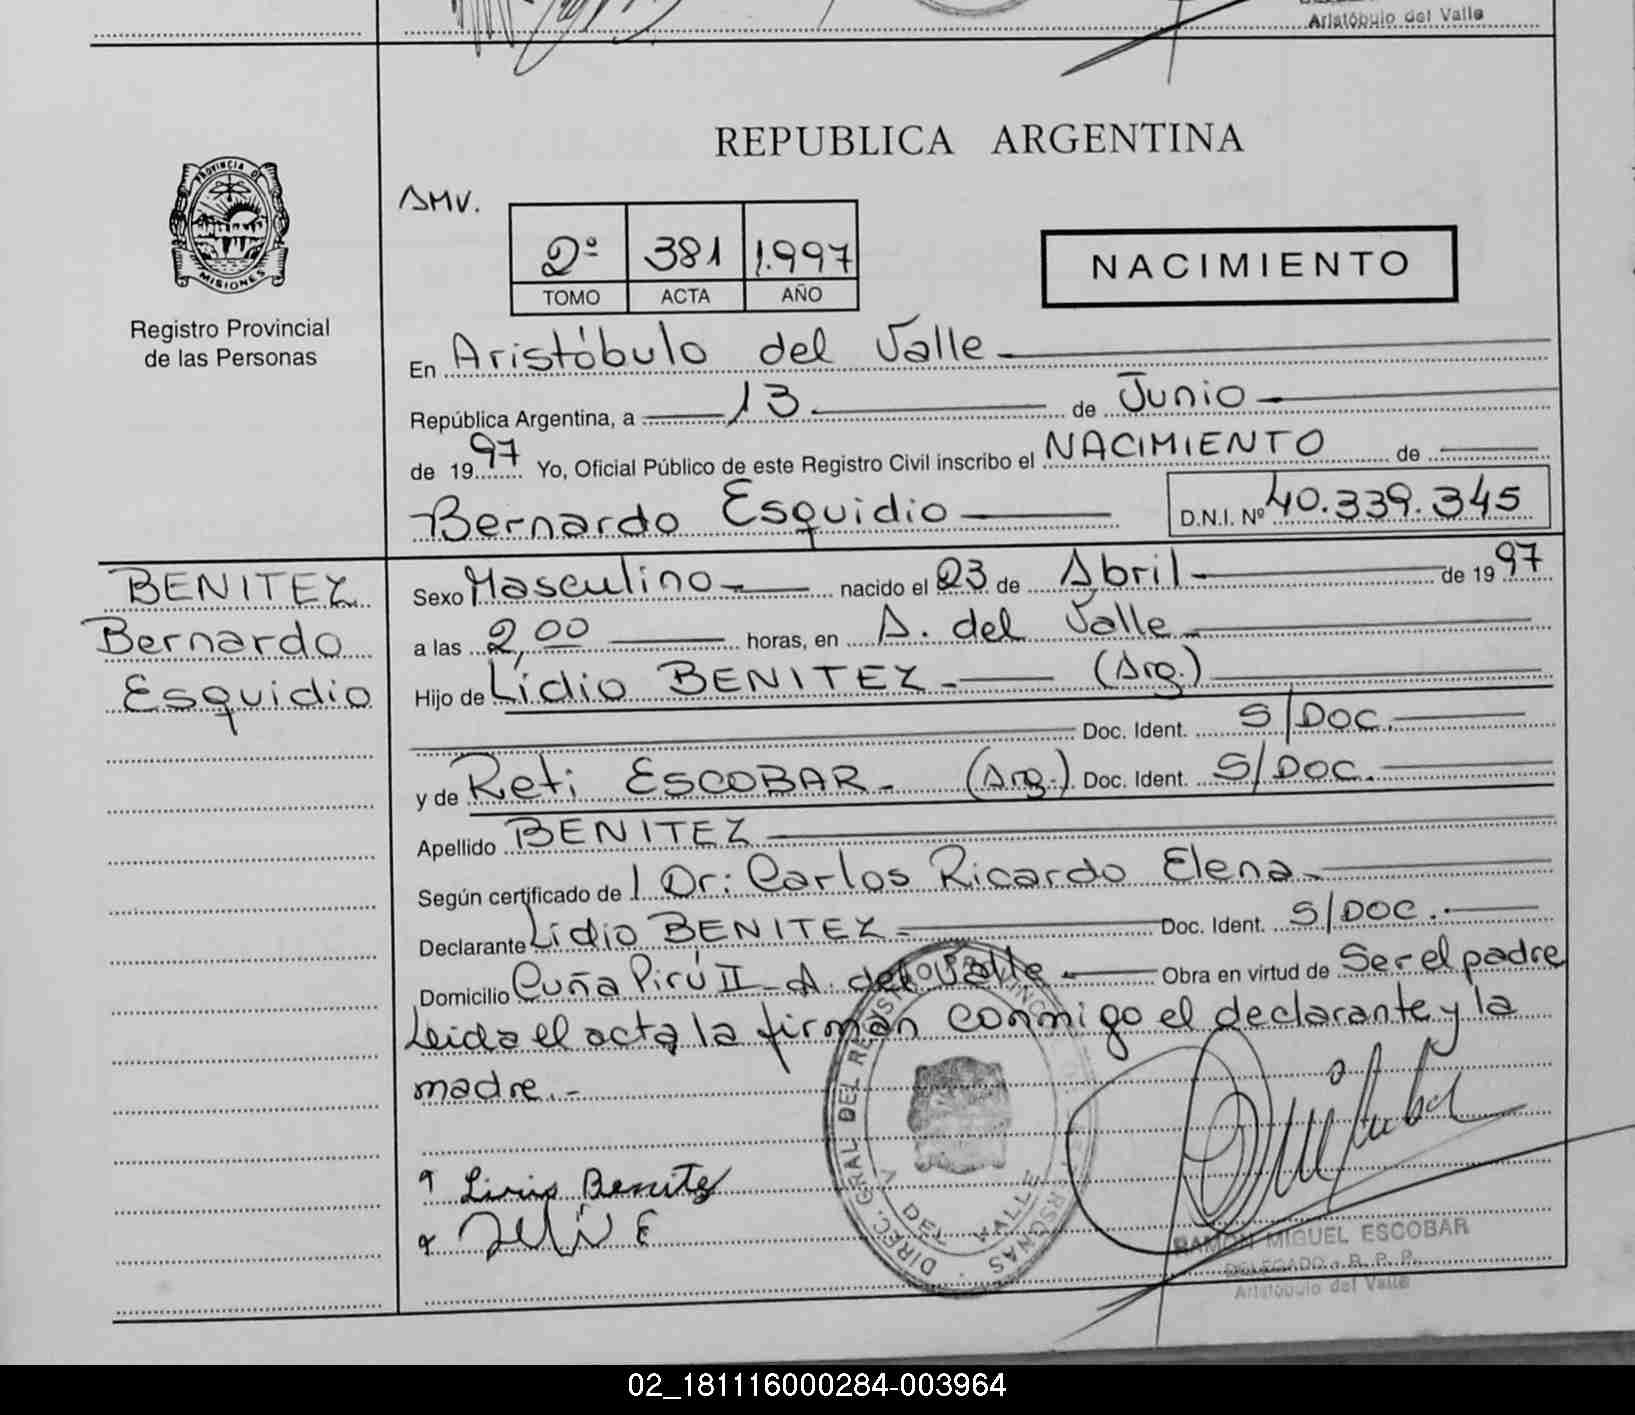 Aristóbulo del Valle
REPUBLICA ARGENTINA
PROVINCIA DE
MISIONES
Registro Provincial
de las Personas
AMV.
2º 381 1.997
TOMO ACTA AÑO
NACIMIENTO
En Aristóbulo del Valle
República Argentina, a 13 de Junio
de 1997 Yo, Oficial Público de este Registro Civil inscribo el NACIMIENTO de
Bernardo Esquidio D.N.I. Nº 40.339.345
BENITEZ
Bernardo
Esquidio
Sexo Masculino nacido el 23 de Abril de 1997
a las 2,00 horas, en A. del Valle
Hijo de Lídio BENITEZ (Arg.)
Doc. Ident. S/DOC.
y de Reti ESCOBAR (Arg.) Doc. Ident. S/DOC.
Apellido BENITEZ
Según certificado de / Dr: Carlos Ricardo Elena
Declarante Lidio BENITEZ Doc. Ident. S/DOC.
Domicilio Cuña Pirú II - A. del Valle Obra en virtud de Ser el padre
Leida el acta la firman conmigo el declarante y la
madre.-
Benitez
DIREC. GRAL DEL REGISTRO PROVINCIAL PERSONAS
DEL VALLE
RAMON MIGUEL ESCOBAR
DELEGADO - R. P. P.
Aristóbulo del Valle
02_181116000284-003964